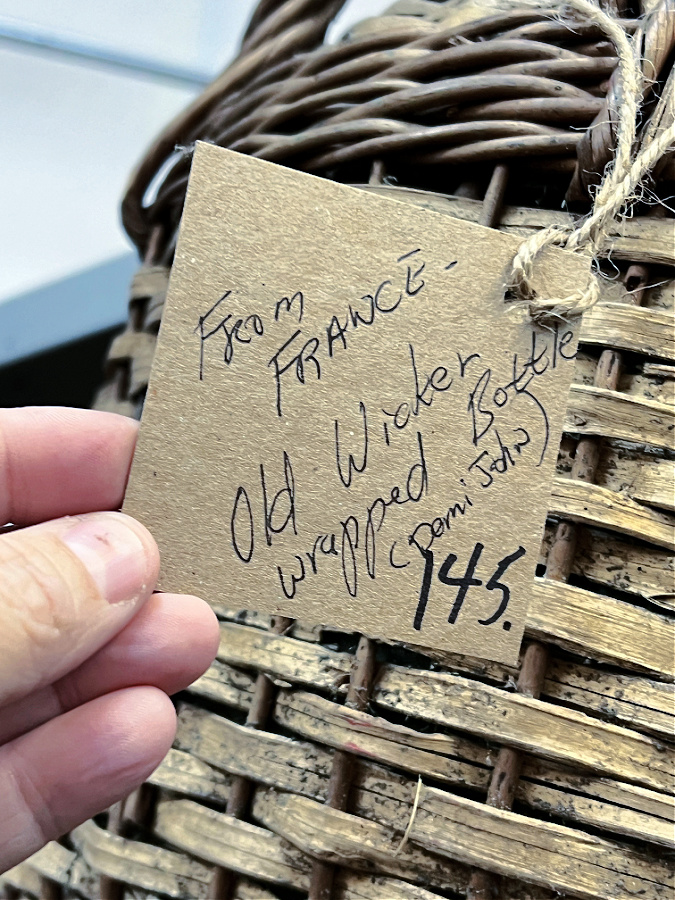 From
FRANCE-
Old Wicker Bottle
wrapped (Demi John)
145.